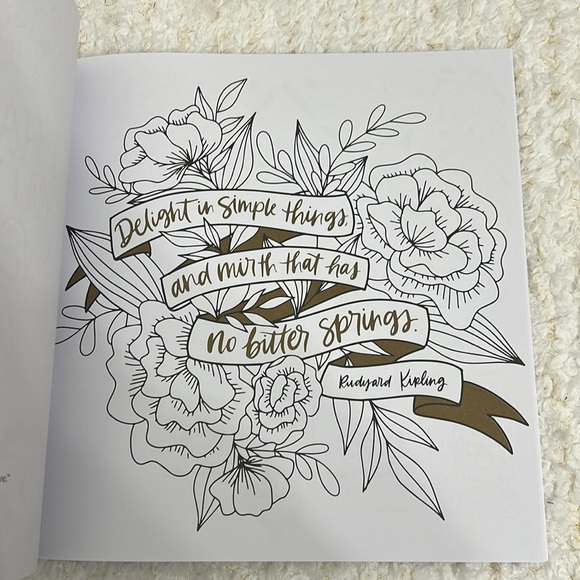 Delight in simple things,
and mirth that has
no bitter springs.
Rudyard Kipling